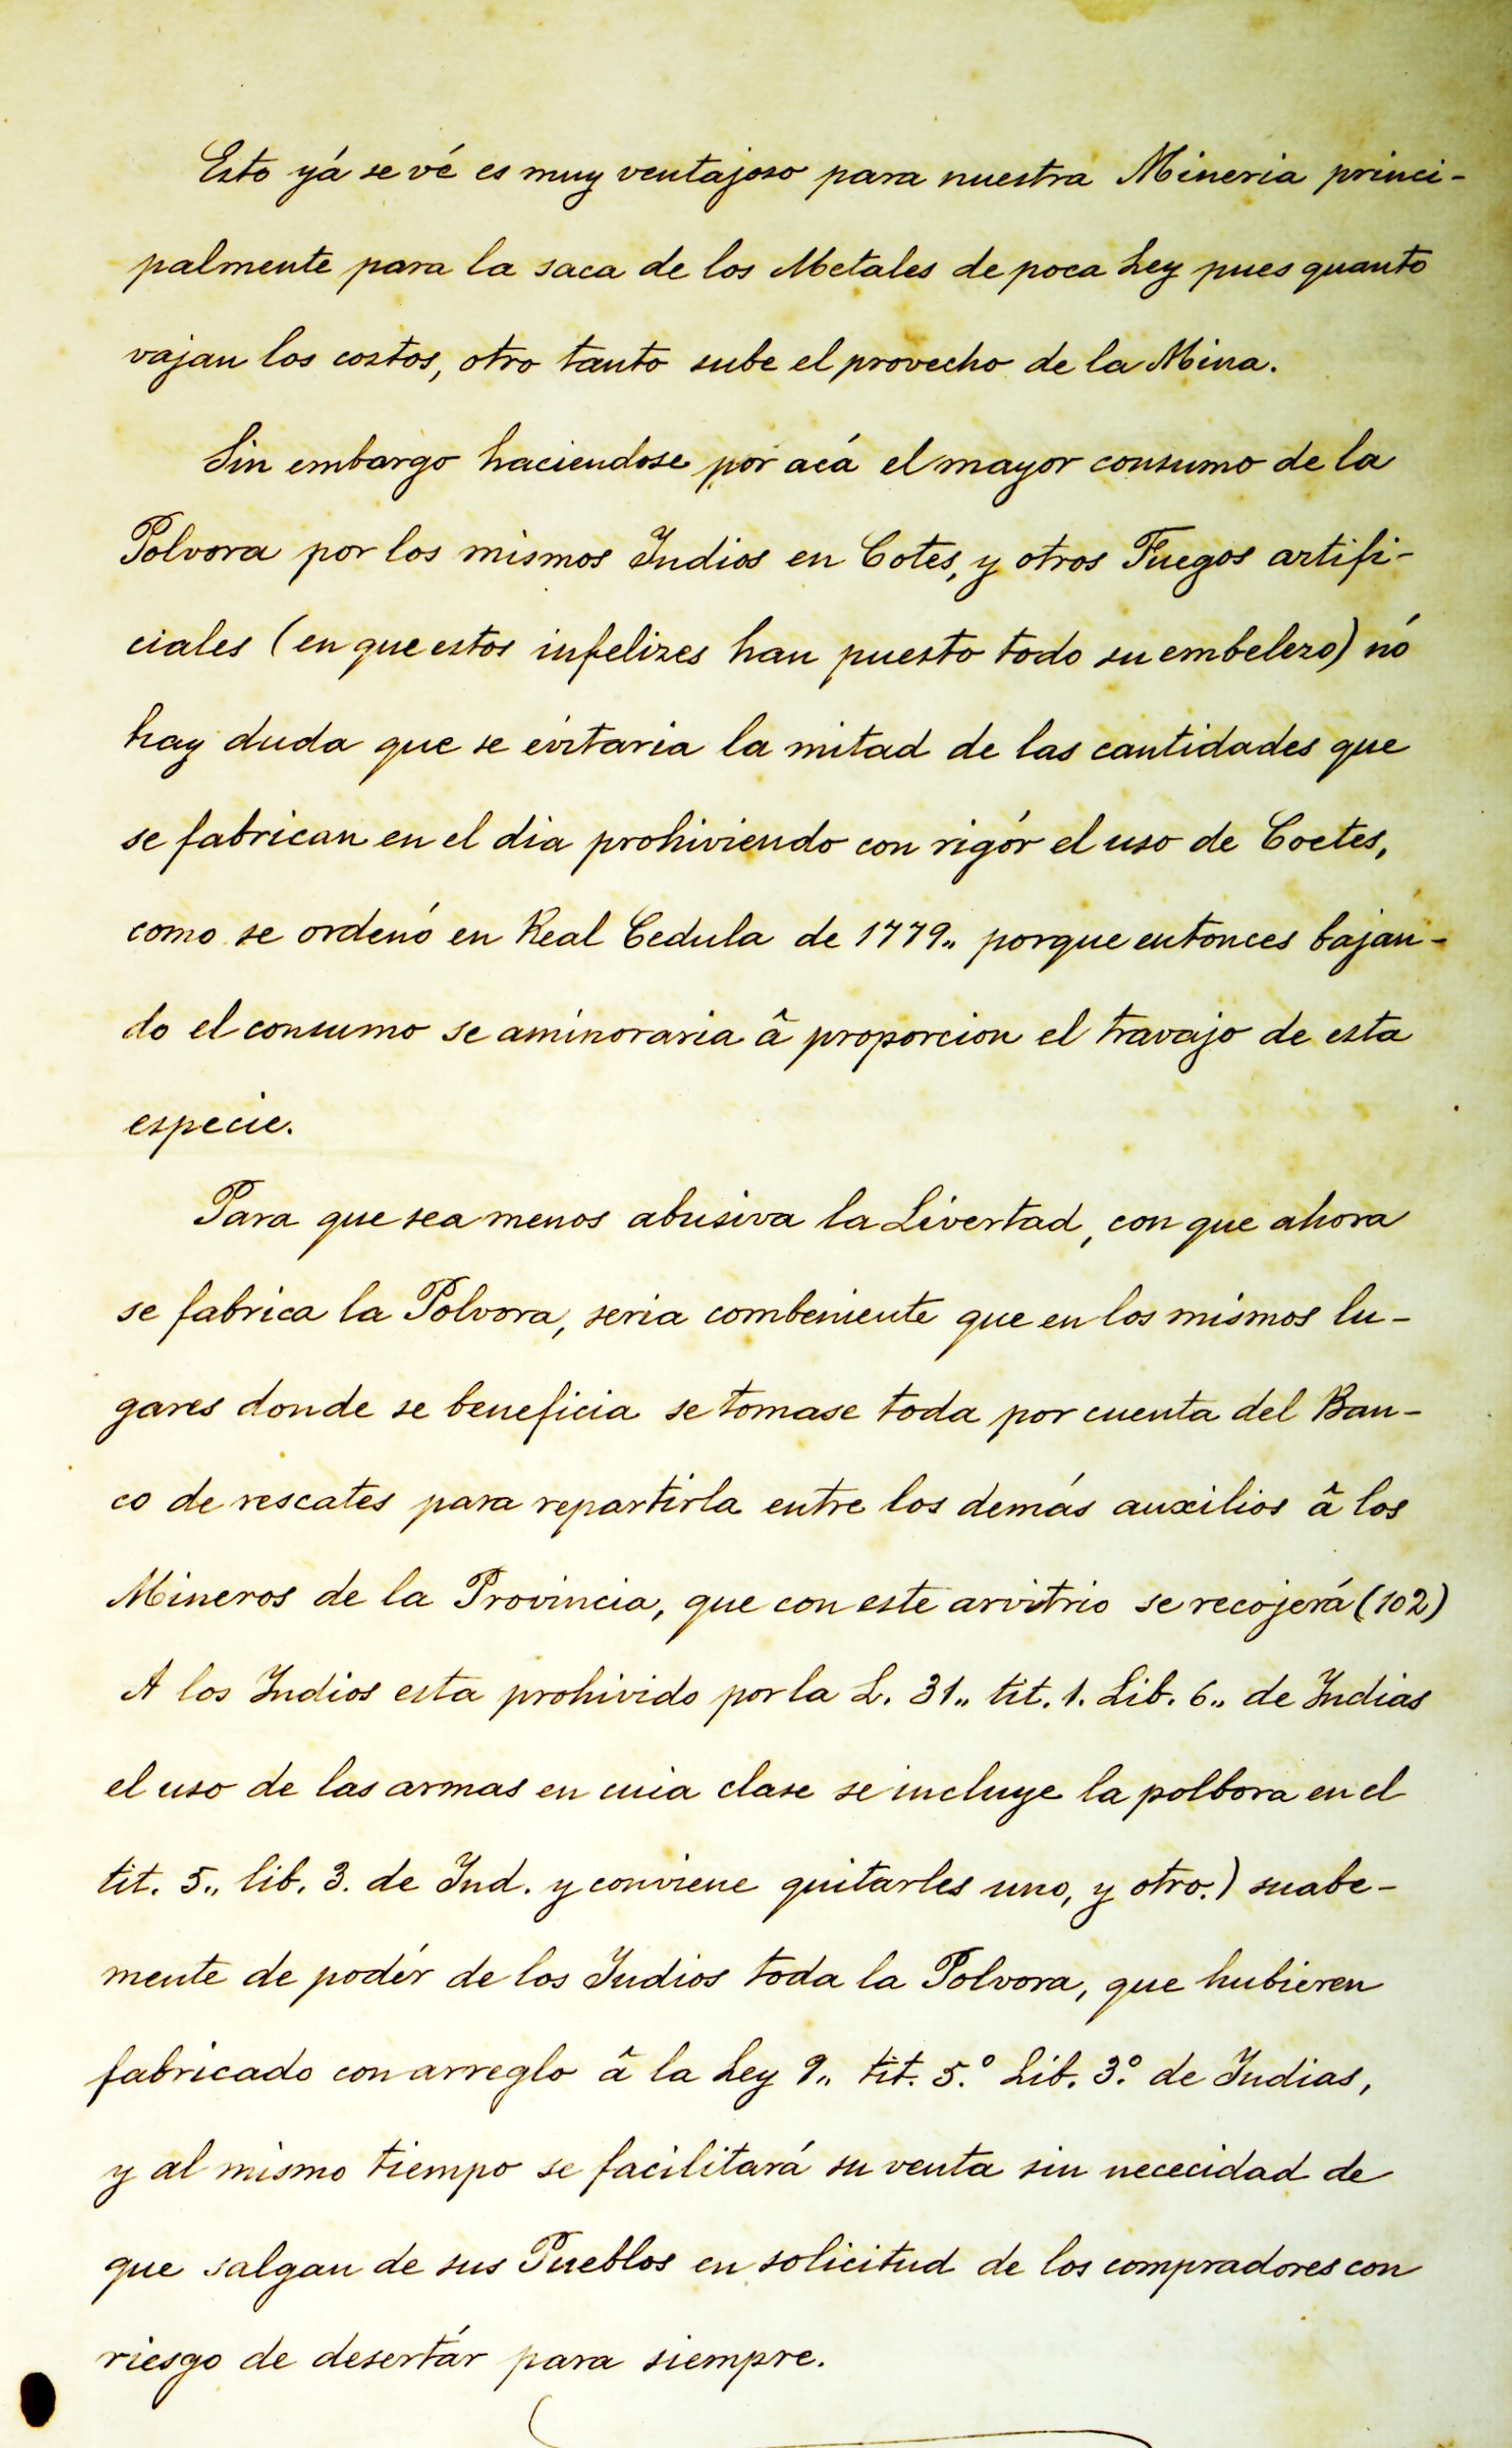 Esto yá se vé es muy ventajoso para nuestra Mineria princi-
palmente para la saca de los Metales de poca Ley pues quanto
vajan los costos, otro tanto sube el provecho de la Mina.
Sin embargo haciendose por acá el mayor consumo de la
Polvora por los mismos Indios en Cotes, y otros Fuegos artifi-
ciales (en que estos infelizes han puesto todo su embelezo) nó
hay duda que se evitaria la mitad de las cantidades que
se fabrican en el dia prohiviendo con rigór el uso de Coetes,
como se ordenó en Real Cedula de 1779,, porque entonces bajan-
do el consumo se aminoraria â proporcion el travajo de esta
especie.
Para que sea menos abusiva la Livertad, con que ahora
se fabrica la Polvora, seria combeniente que en los mismos lu-
gares donde se beneficia se tomase toda por cuenta del Ban-
co de rescates para repartirla entre los demás auxilios â los
Mineros de la Provincia, que con este arvitrio se recojerá (102)
A los Indios esta prohivido por la L. 31,, tit. 1. Lib. 6,, de Indias
el uso de las armas en cuia clase se incluye la polbora en el
tit. 5,, lib. 3. de Ind. y conviene quitarles uno, y otro.) suabe-
mente de podér de los Indios toda la Polvora, que hubieren
fabricado con arreglo â la Ley 9,, tit. 5.º Lib. 3º de Indias,
y al mismo tiempo se facilitará su venta sin nececidad de
que salgan de sus Pueblos en solicitud de los compradores con
riesgo de desertár para siempre.